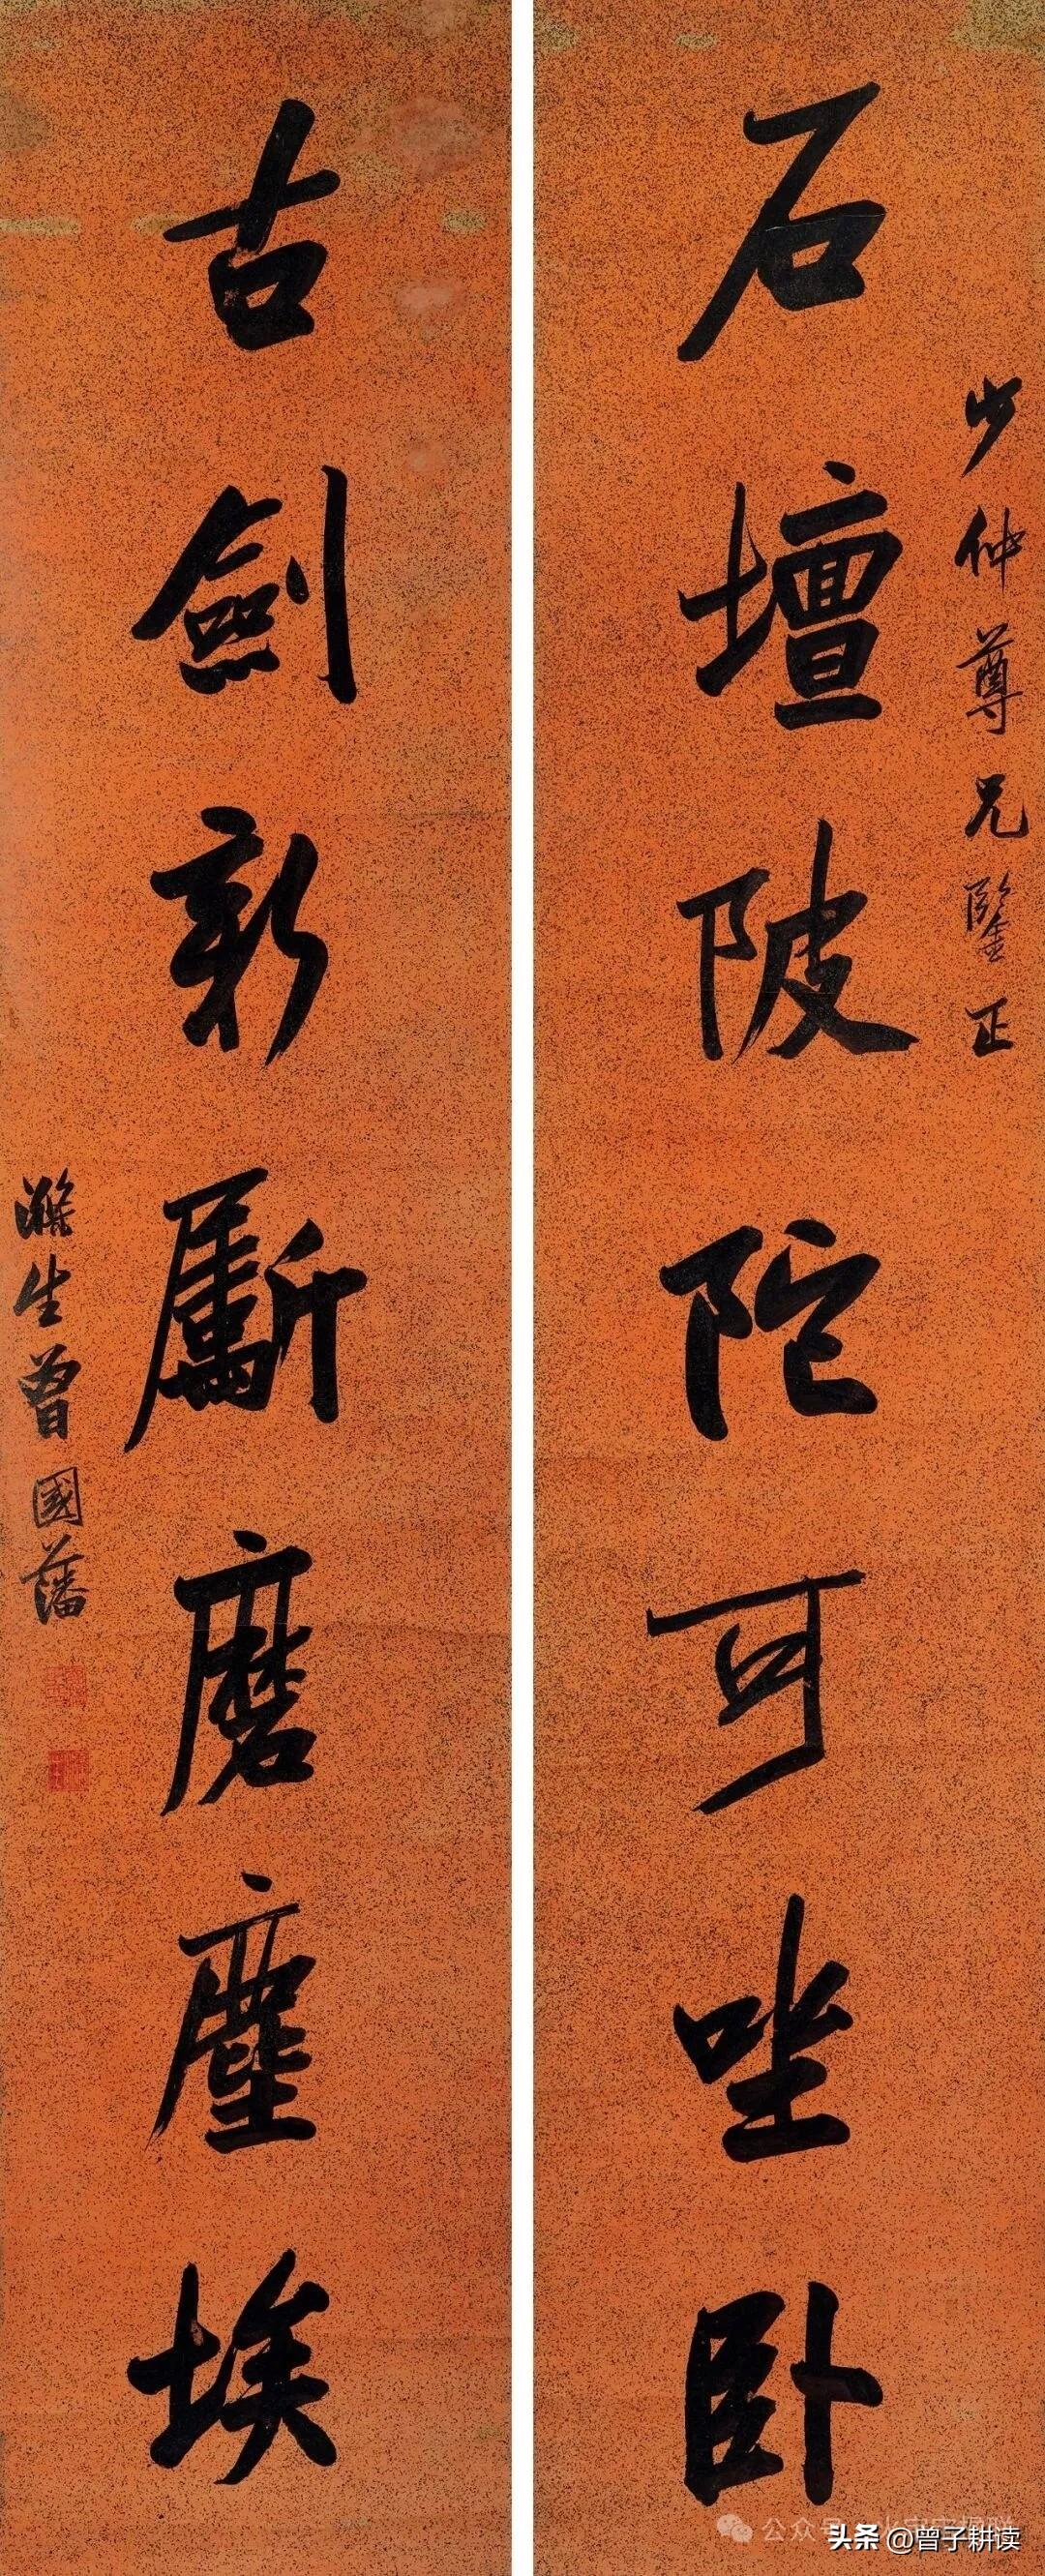 石壇陂陀可坐卧
少仲尊兄鑒正
古劍新斸磨塵埃
滌生曾國藩
公众号
头条 @曾子耕读